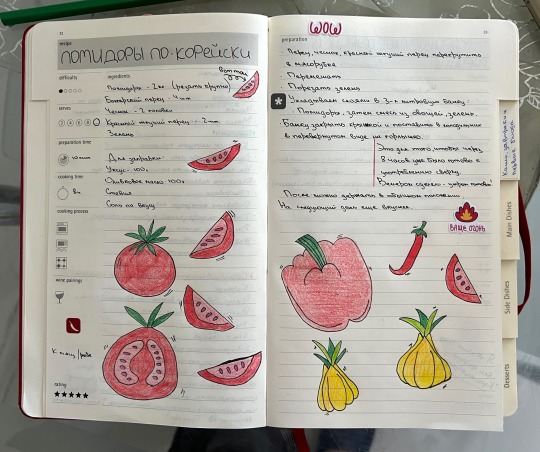 32
recipe
ПОМИДОРЫ ПО-КОРЕЙСКИ
difficulty
ingredients
Вот так
Помидоры - 2кг (резать крупно)
Болгарский перец - 4 шт
Чеснок - 2 головки
serves
Красный жгучий перец - 2 шт.
Зелень
preparation time
40 мин
Для заправки:
Уксус - 100г
cooking time
Оливковое масло - 100г
8ч
Соль по вкусу
cooking process
wine pairings
К мясу/рыбе
rating
★★★★★
WOW
preparation
33
· Перец, чеснок, красный жгучий перец перекрутить
в мясорубке
· Перемешать
· Порезать зелень
* Укладываем слоями в 3-х литровую банку:
Помидоры, затем смесь из овощей, зелень.
Банку закрыть крышкой и поставить в холодильник
в перевернутом виде на горлышко.
Это для того чтобы через
8 часов уже было готово к
употреблению сверху.
Вечером сделал - утром готово
После можно держать в обычном положении.
На следующий день еще вкуснее.
ВАЩЕ ОГОНЬ
Main Dishes
Side Dishes
Desserts